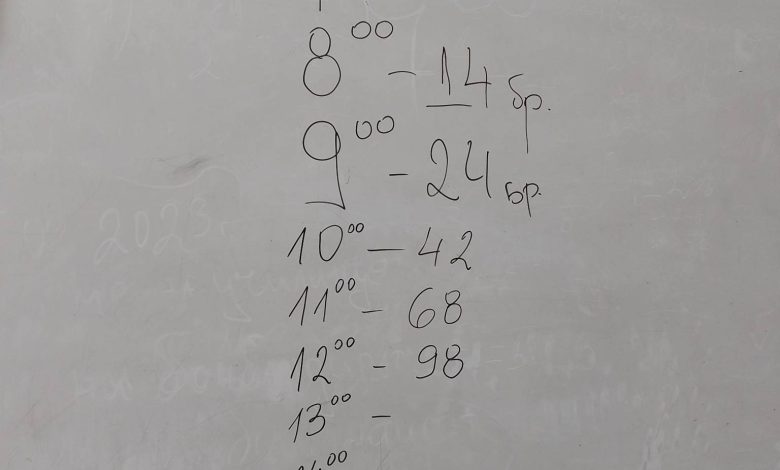 8⁰⁰ – 14 бр.
9⁰⁰ – 24 бр.
10⁰⁰ – 42
11⁰⁰ – 68
12⁰⁰ – 98
13⁰⁰ –